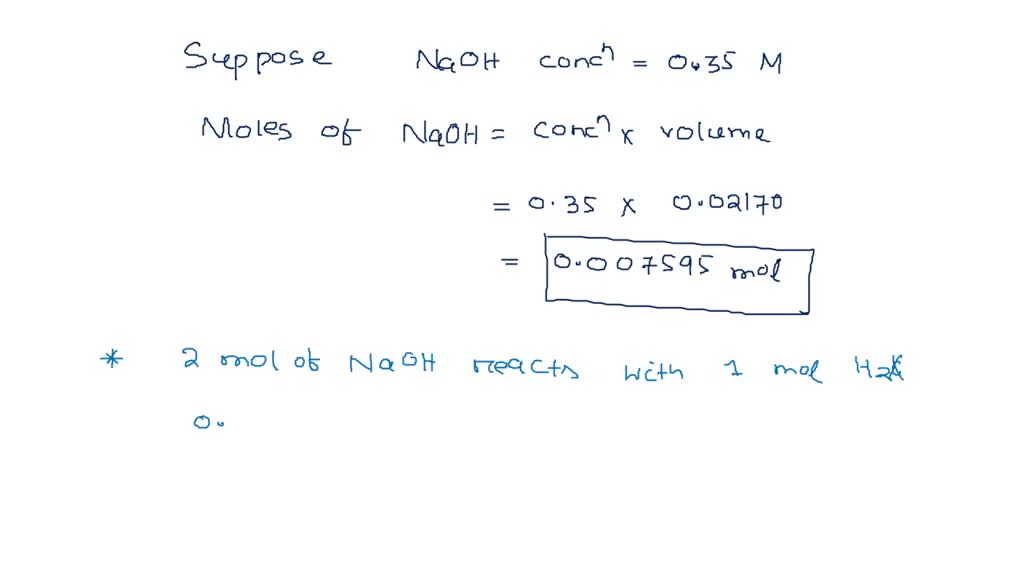 Suppose NaOH concⁿ = 0.35 M
Moles of NaOH = concⁿ x volume
= 0.35 x 0.02170
= 0.007595 mol
* 2 mol of NaOH reacts with 1 mol
0.